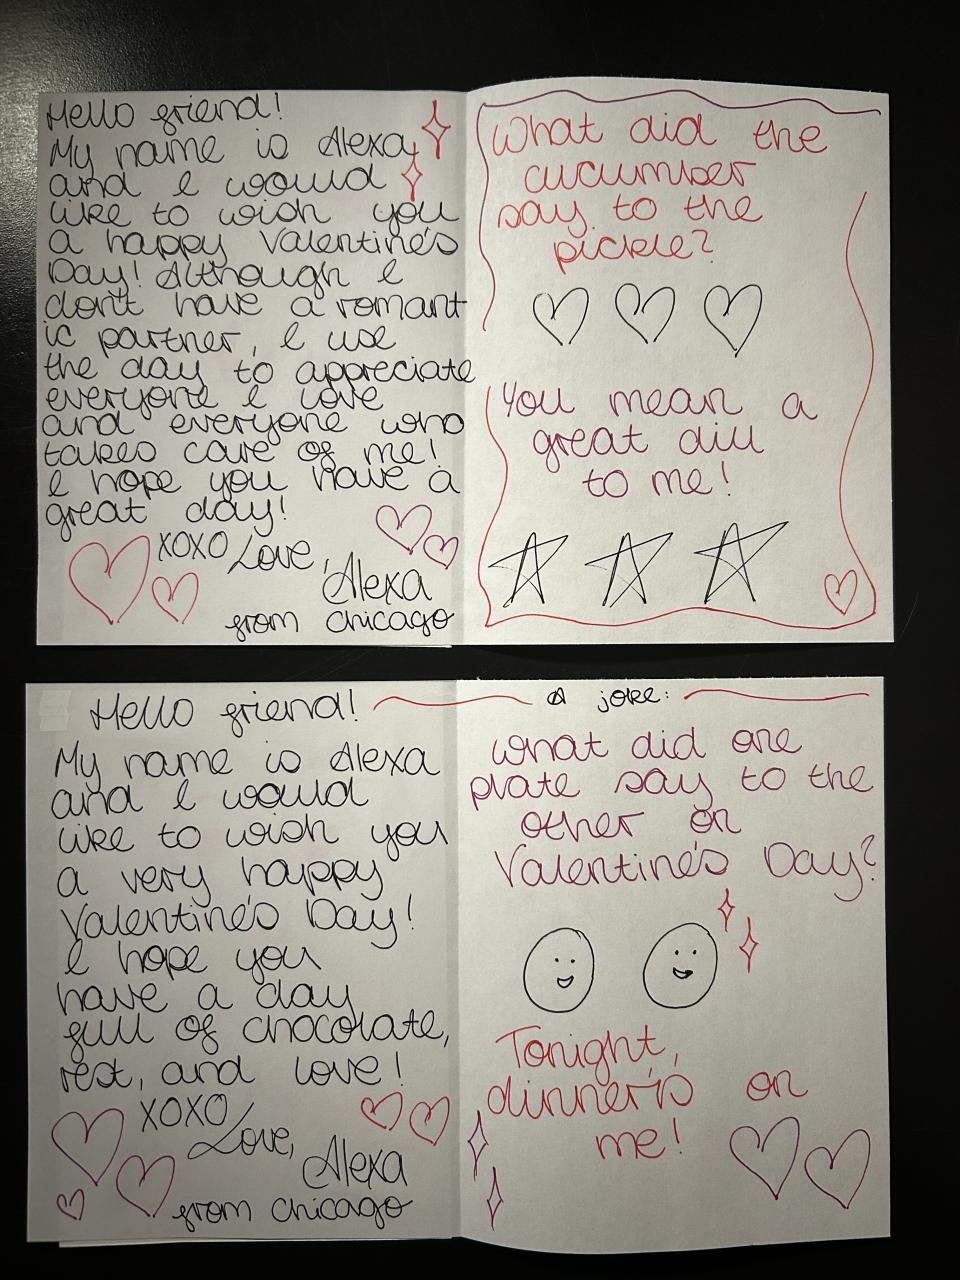 Hello friend!
My name is Alexa
and I would
like to wish you
a happy Valentine's
Day! Although I
don't have a romant
ic partner, I use
the day to appreciate
everyone I love
and everyone who
takes care of me!
I hope you have a
great day!
XOXO Love,
Alexa
from Chicago
What did the
cucumber
say to the
pickle?
You mean a
great dill
to me!
Hello friend!
My name is Alexa
and I would
like to wish you
a very happy
Valentine's Day!
I hope you
have a day
full of chocolate,
rest, and love!
XOXO
Love,
Alexa
from Chicago
A joke:
What did one
plate say to the
other on
Valentine's Day?
Tonight,
dinner's on
me!